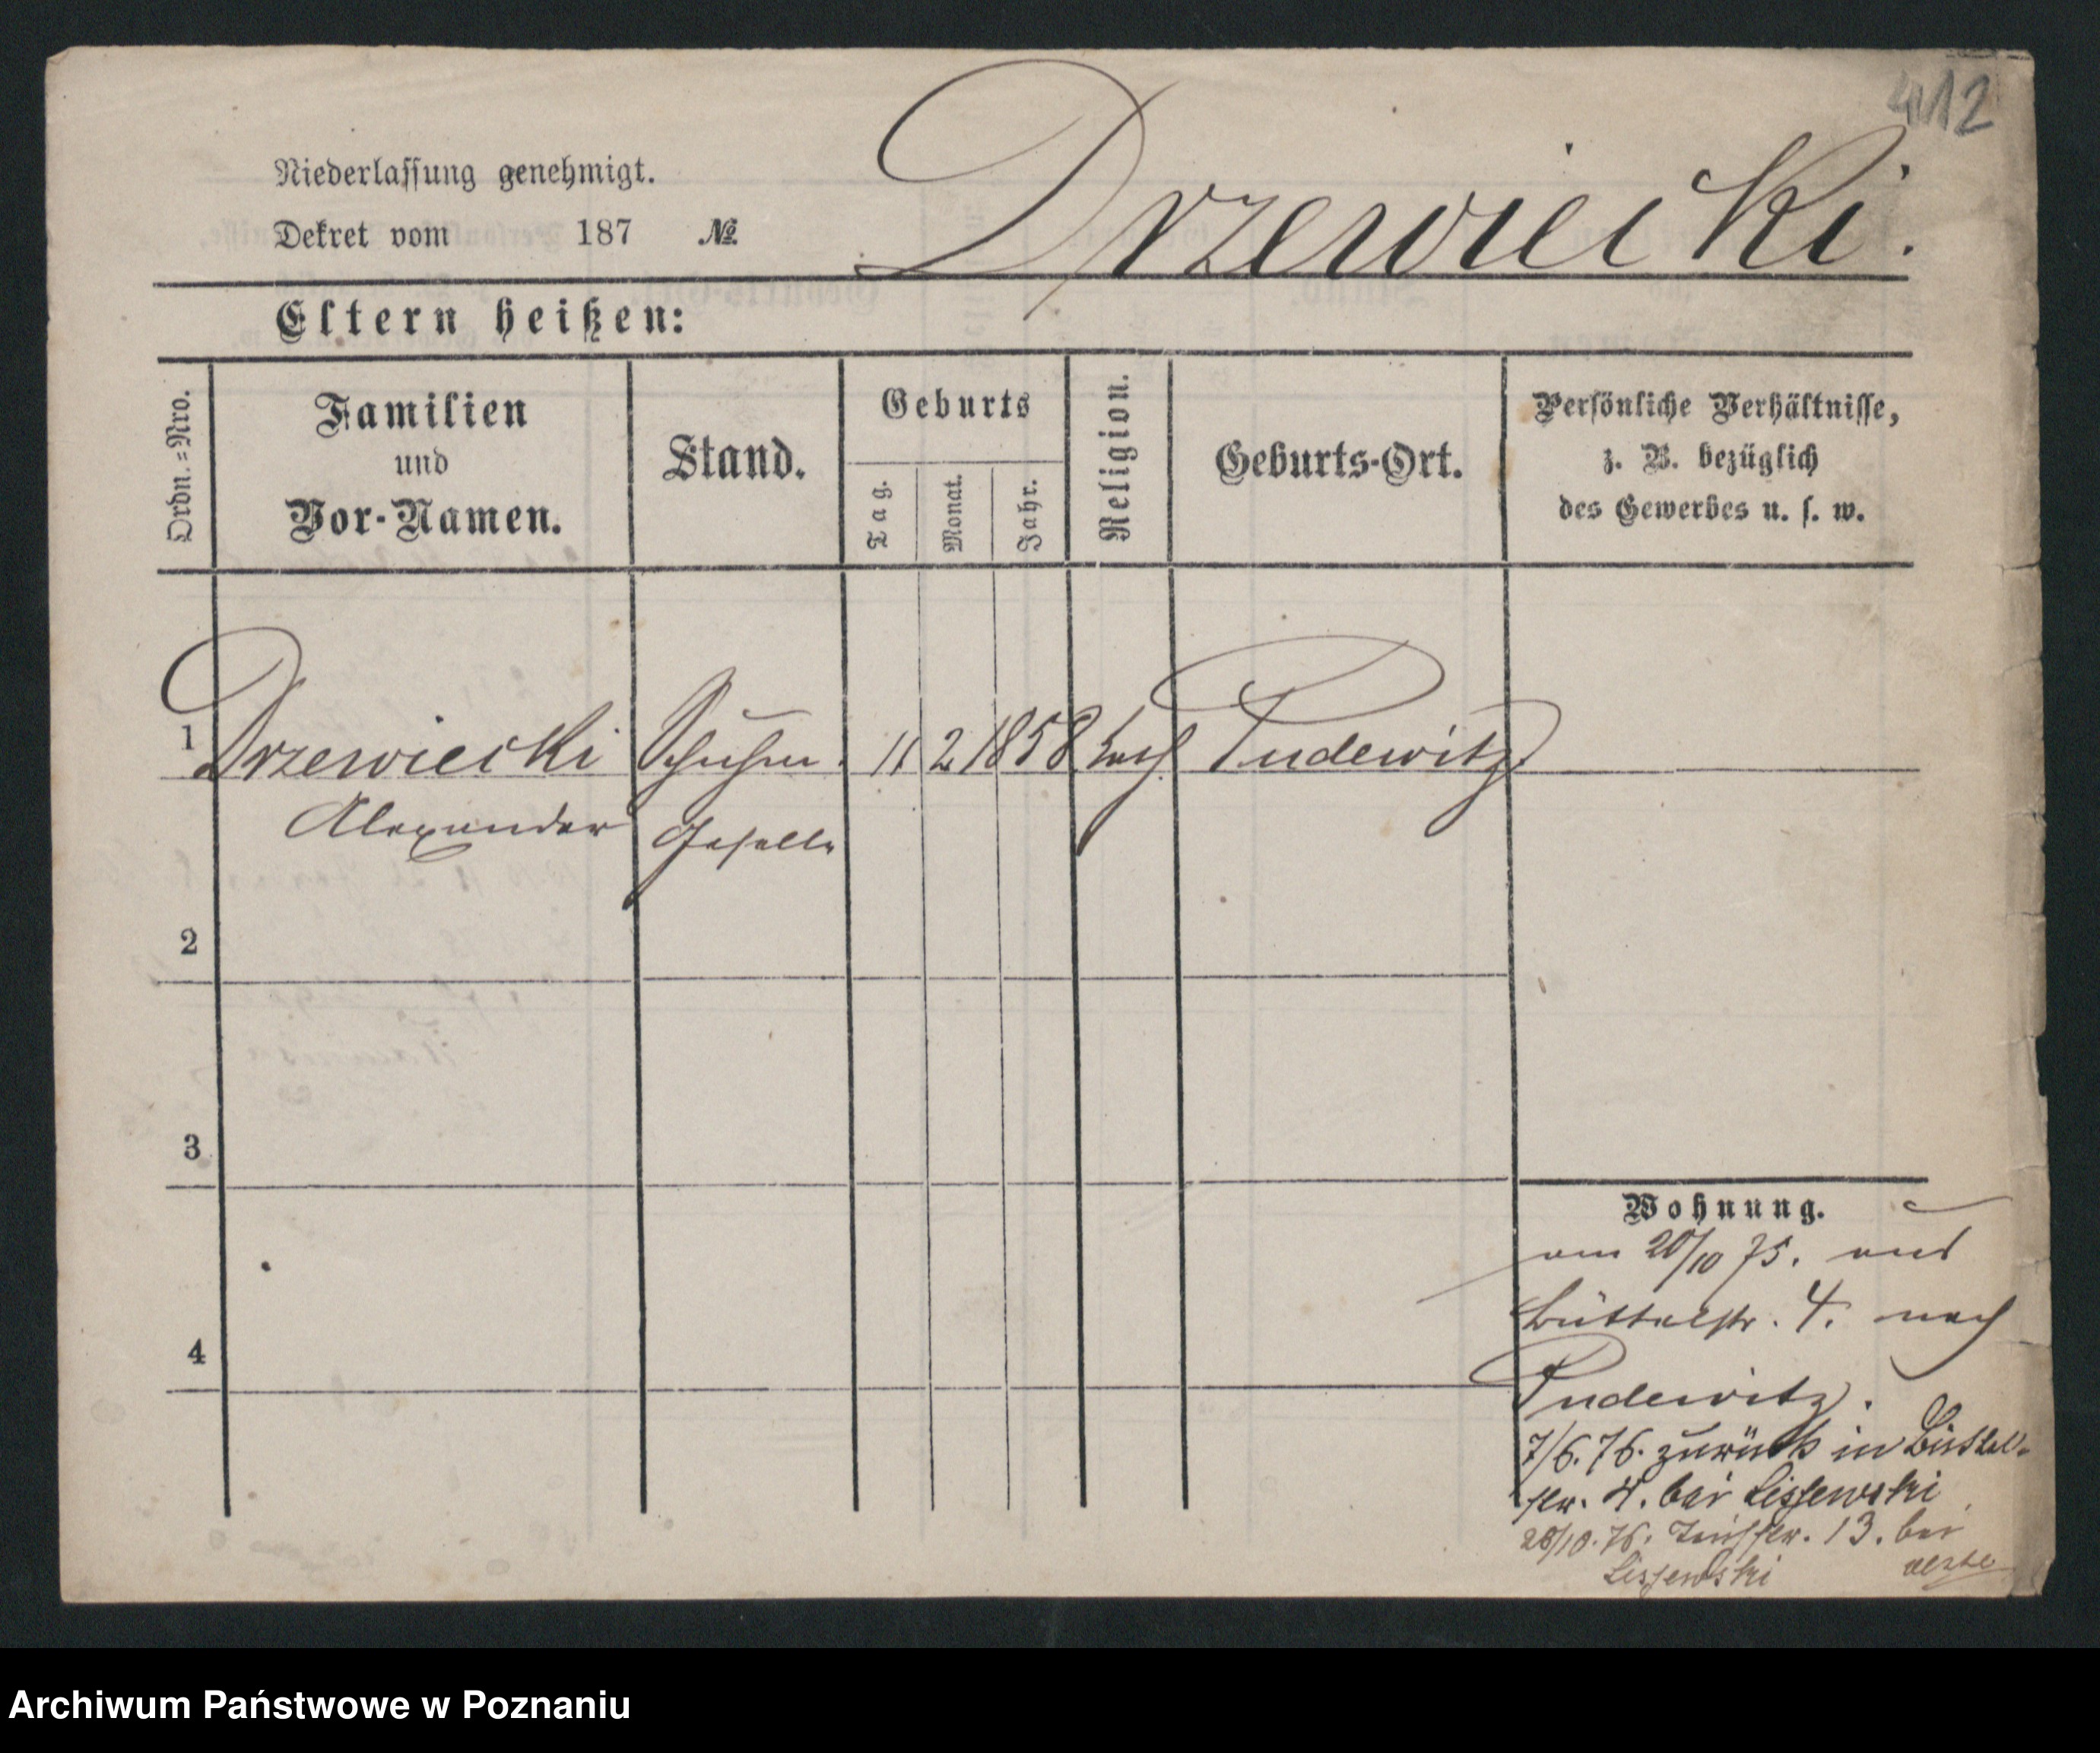 412
Niederlassung genehmigt.
Dekret vom 187 №
Drzewiecki.
Eltern heißen:
Ordn.=Nro.
Familien
und
Vor-Namen.
Stand.
Geburts
Tag.
Monat.
Jahr.
Religion.
Geburts-Ort.
Persönliche Verhältnisse,
z. B. bezüglich
des Gewerbes u. s. w.
1 Drzewiecki Schuhm. 11 2 1858 kath. Pudewitz
Alexander Geselle
2
3
4
Wohnung.
am 20/10 75. aus
Büttelstr. 4. nach
Pudewitz.
7/6. 76. zurück in Büttel-
str. 4. bei Lissewski
28/10. 76. 13. bei
Lissewski
Archiwum Państwowe w Poznaniu